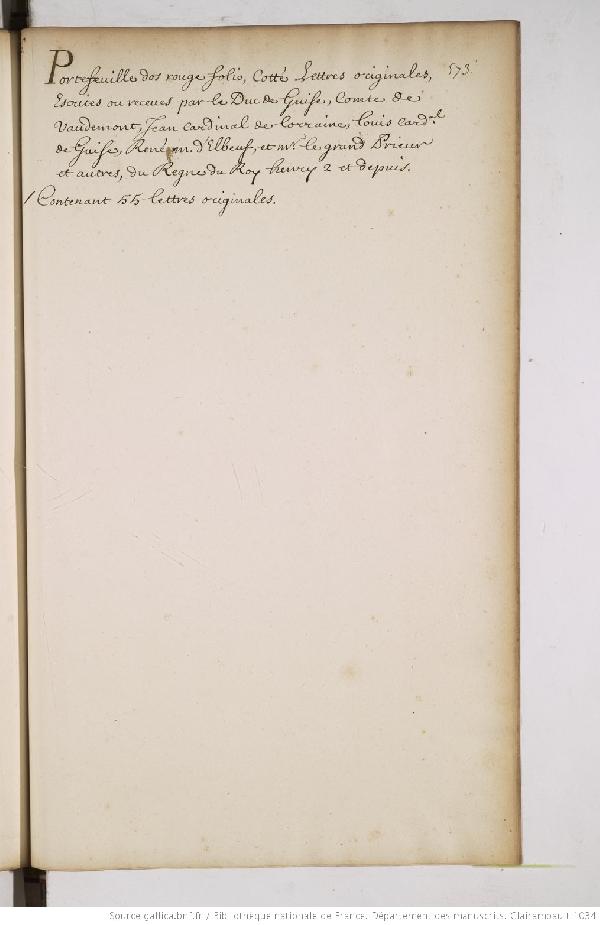 Portefeuille dos rouge folio, Cotté Lettres originales, 573.
Escrites ou receues par le Duc de Guise, Comte de
Vaudemont, Jean Cardinal de Lorraine, Louis Card.al
de Guise, René m. d'Elbeuf, et mr. le grand Prieur
et autres, du Regne du Roy henry 2 et depuis.
/ Contenant 55 lettres originales.
Source gallica.bnf.fr / Bibliothèque nationale de France. Département des manuscrits. Clairambault 1034